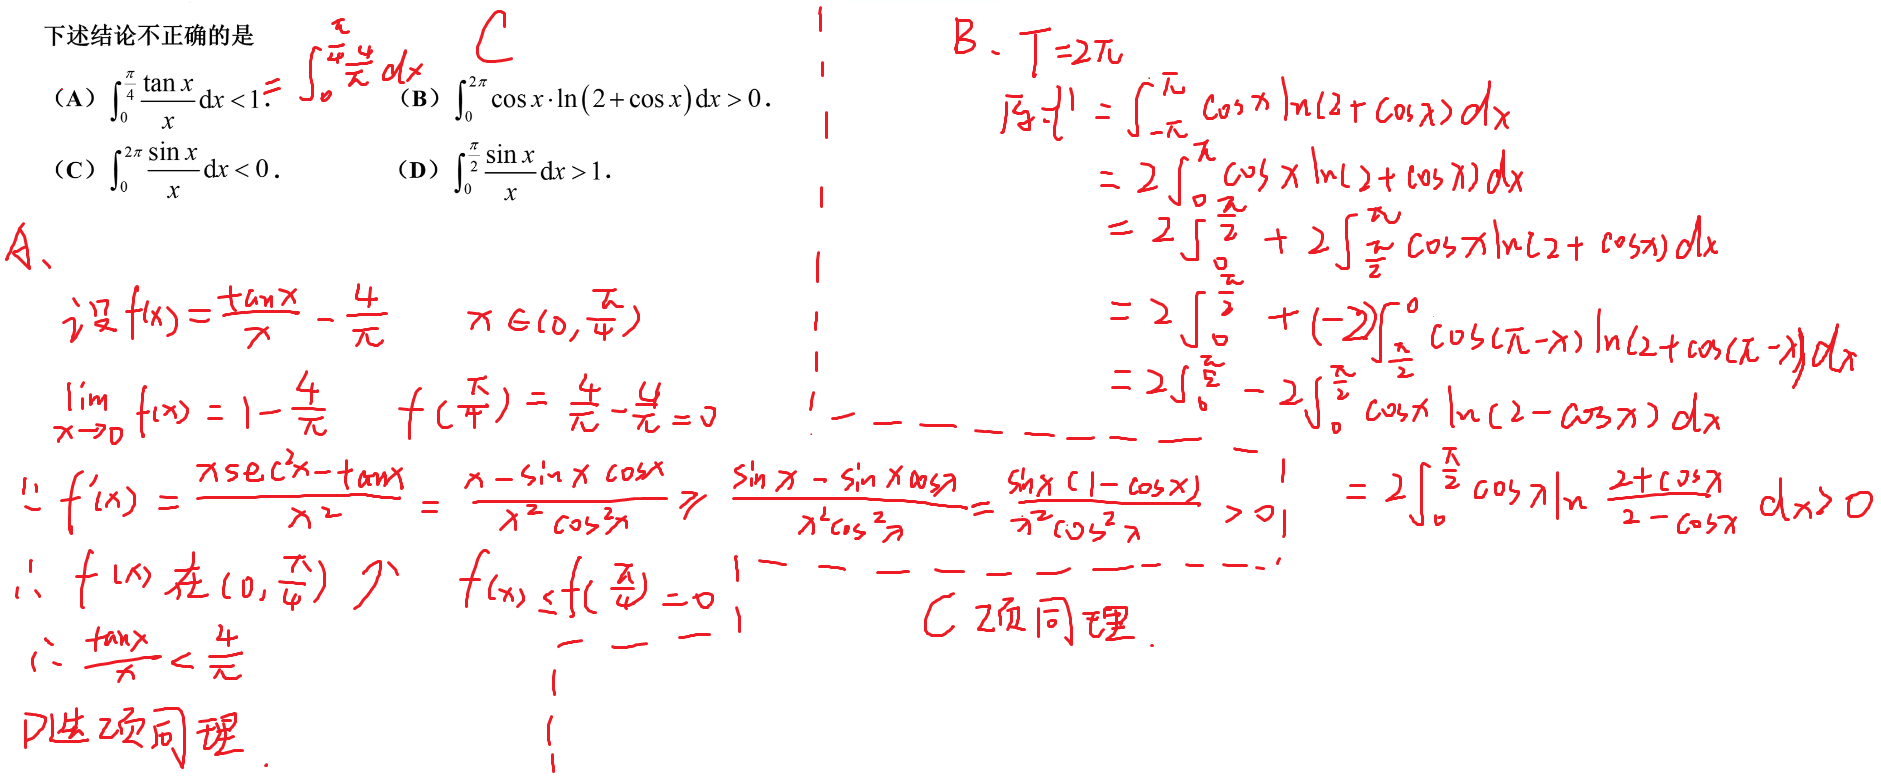 下述结论不正确的是
C
(A) ∫₀^{π/4} (tan x)/x dx < 1. = ∫₀^{π/4} 4/π dx
(B) ∫₀^{2π} cos x·ln(2+cos x)dx > 0.
(C) ∫₀^{2π} (sin x)/x dx < 0.
(D) ∫₀^{π/2} (sin x)/x dx > 1.
A、
设 f(x) = tanx/x − 4/π   x∈(0, π/4)
lim_{x→0} f(x) = 1 − 4/π   f(π/4) = 4/π − 4/π = 0
∵ f'(x) = (xsec²x − tanx)/x² = (x − sinx cosx)/(x² cos²x) ≥ (sinx − sinx cosx)/(x² cos²x) = sinx(1−cosx)/(x² cos²x) > 0
∴ f(x) 在 (0, π/4) ↗   f(x) ≤ f(π/4) = 0
∴ tanx/x < 4/π
D选项同理.
B、T = 2π
原式 = ∫_{-π}^{π} cosx ln(2+cosx) dx
= 2∫₀^{π} cosx ln(2+cosx) dx
= 2∫₀^{π/2} + 2∫_{π/2}^{π} cosx ln(2+cosx) dx
= 2∫₀^{π/2} + (−2)∫_{π/2}^{0} cos(π−x) ln(2+cos(π−x)) dx
= 2∫₀^{π/2} − 2∫₀^{π/2} cosx ln(2−cosx) dx
= 2∫₀^{π/2} cosx ln (2+cosx)/(2−cosx) dx > 0
C 项同理.